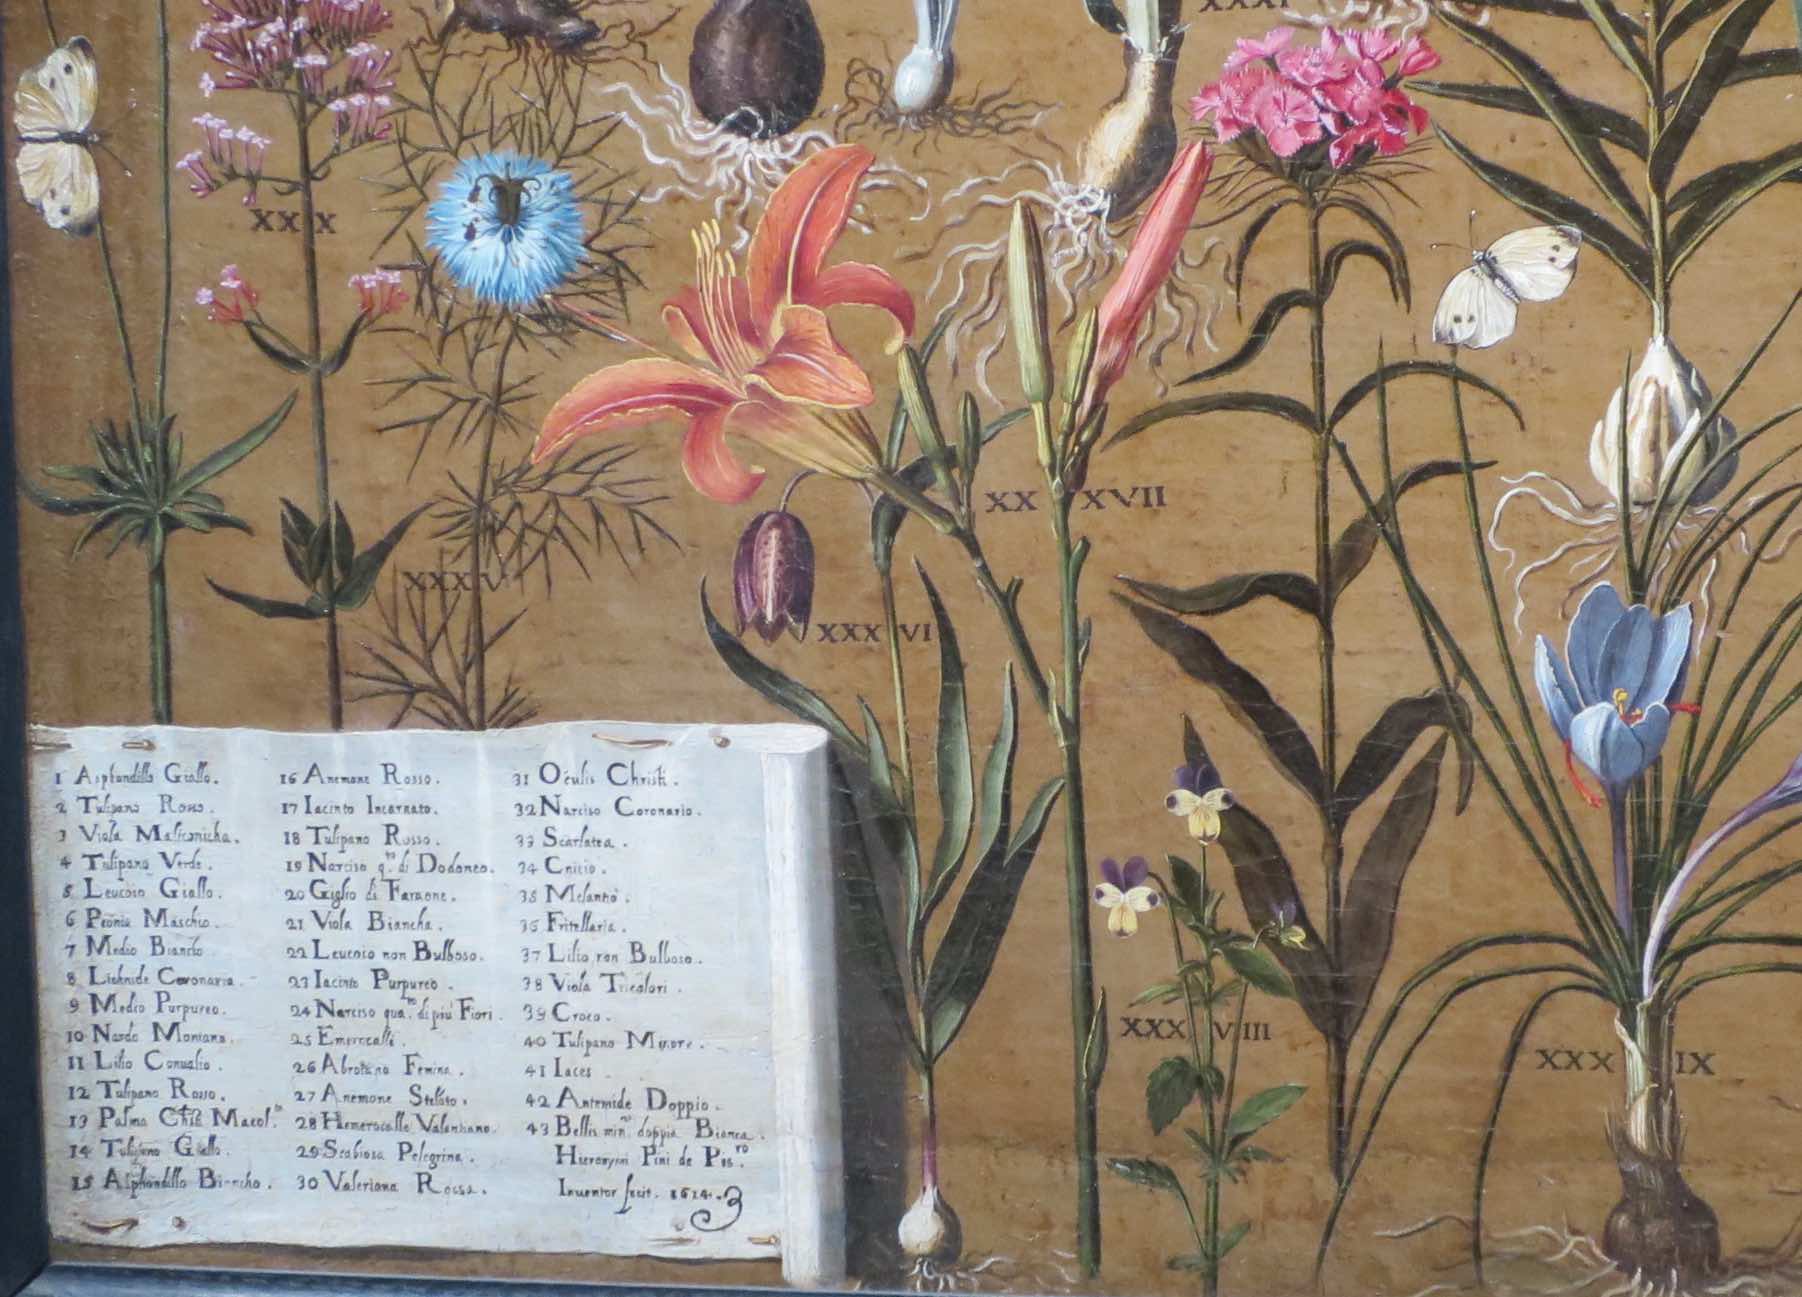 XXXI
XXIX
XXXVII
XXXV
XXXVI
XXXVIII
XXXIX
1 Asphondillo Giallo.
2 Tulipano Rosso.
3 Viola Malinconicha.
4 Tulipano Verde.
5 Leucoio Giallo.
6 Peonia Maschio.
7 Medio Biancho
8 Lichnide Coronaria.
9 Medio Purpureo.
10 Nardo Montano.
11 Lilio Conualio.
12 Tulipano Rosso.
13 Palma
14 Tulipano Giallo.
15 Asphondillo Biancho.
16 Anemone Rosso.
17 Iacinto Incarnato.
18 Tulipano Rosso.
19 Narciso q.to di Dodoneo.
20 Giglio di Faraone.
21 Viola Biancha.
22 Leucoio non Bulboso.
23 Iacinto Purpureo.
24 Narciso qua.to di più Fiori.
25 Emerocalli.
26 Abrotano Femina.
27 Anemone Stelato.
28 Hemerocalle Valentiano.
29 Scabiosa Pelegrina.
30 Valeriana Rossa.
31 Oculis Christi.
32 Narciso Coronario.
33 Scarlatea.
34 Cnicio.
35 Melantio.
36 Fritellaria.
37 Lilio non Bulboso.
38 Viola Tricolori.
39 Croco.
40 Tulipano Minore.
41 Iaces
42 Antemide Doppio.
43 Bellis min.r doppia Bianca.
Hieronymi Pini de Pis.ro
Inuentor fecit. 1614.